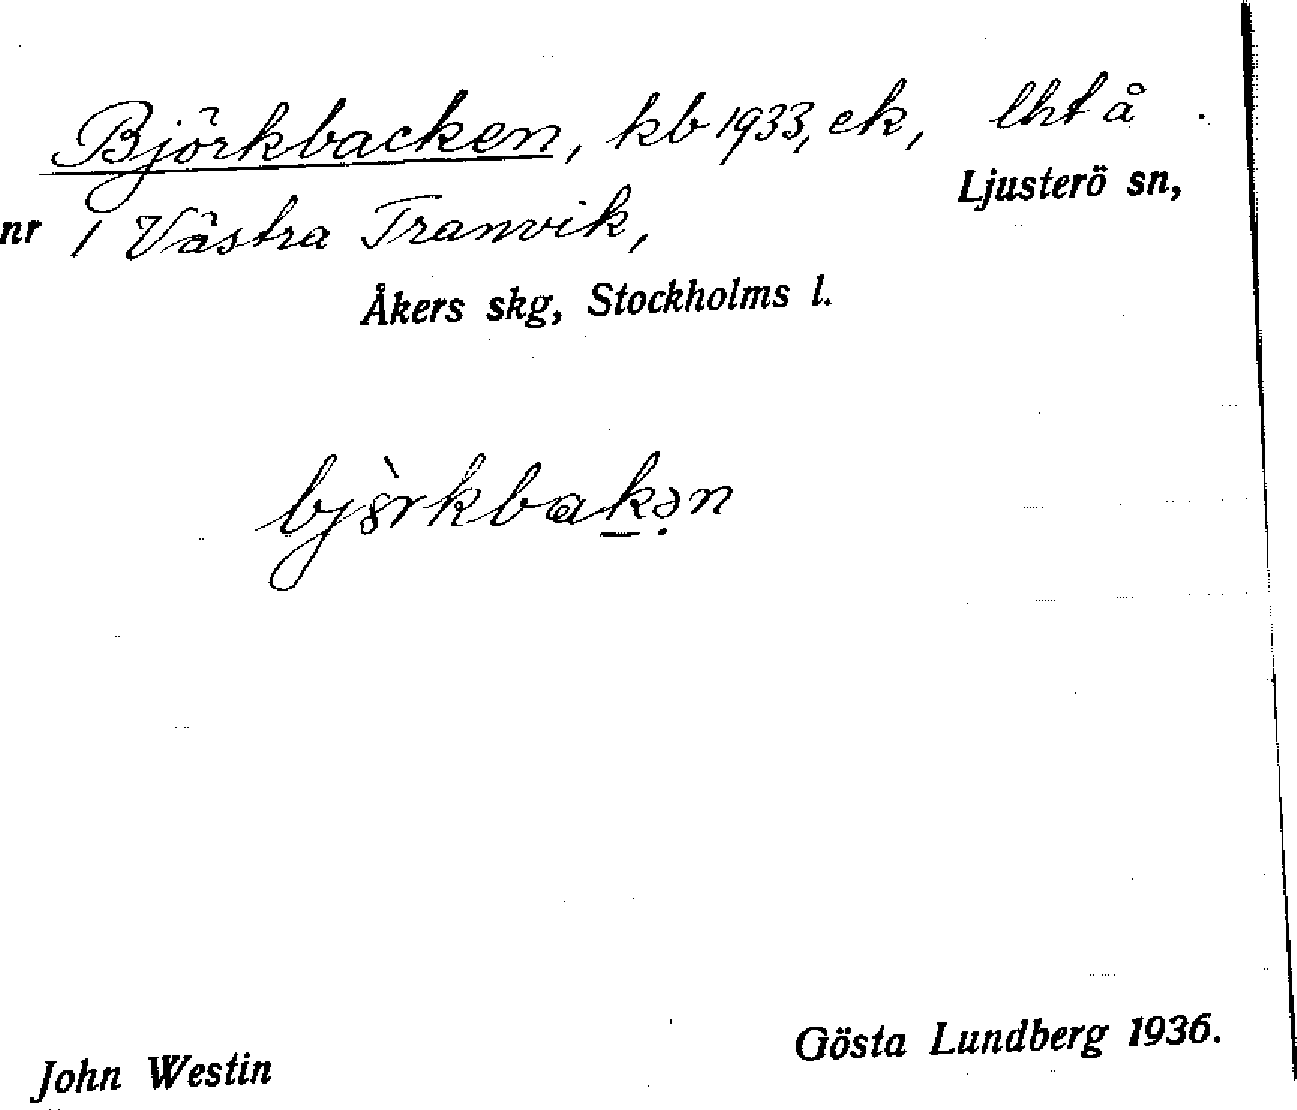 Björkbacken, kb 1933, ek, lht å
Ljusterö sn,
nr 1 Västra Tranvik,
Åkers skg, Stockholms l.
bjö̀rkbak̲ə̣n
John Westin
Gösta Lundberg 1936.